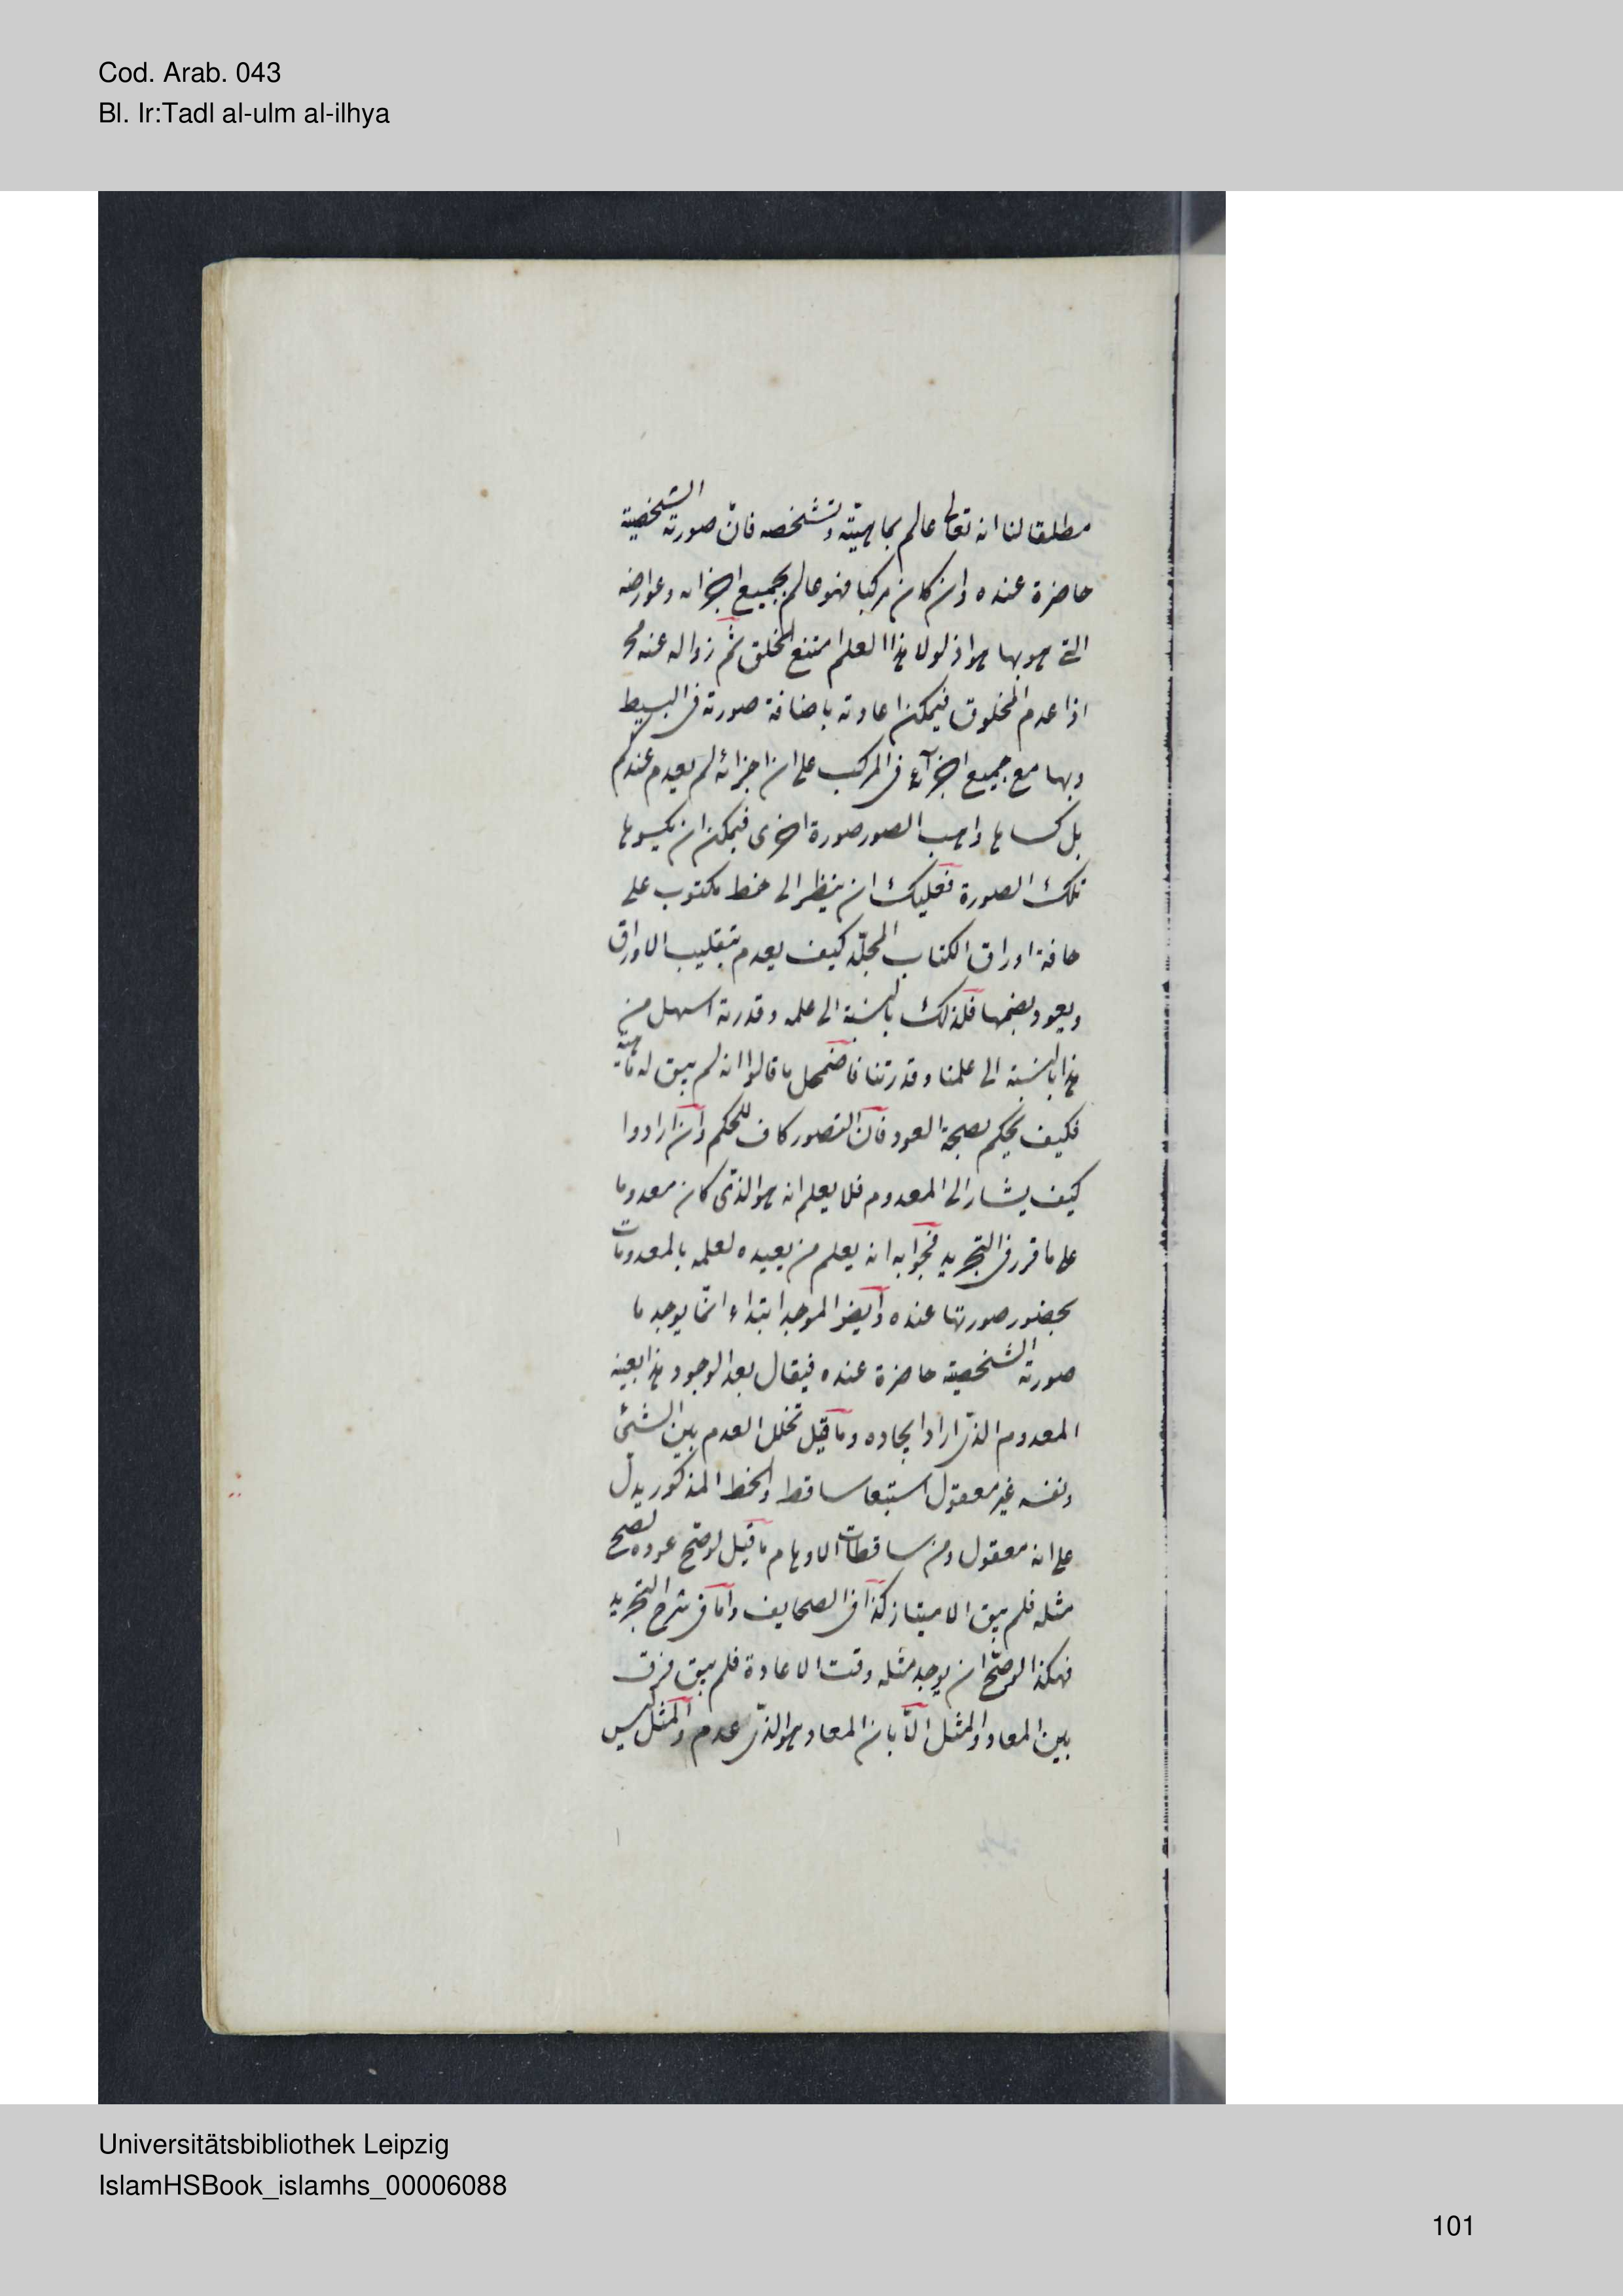 Cod. Arab. 043
Bl. Ir:Tadl al-ulm al-ilhya
مطلقا لنا انه تعالى عالم بماهيّته وتشخصه فانّ صورته الشخصية
حاضرة عنده وان كان مركبا فهو عالم بجميع اجزائه وعوارضه
التى هو بها هو اذ لولا هذا العلم امتنع الخلق ثم زواله عنه مح
اذا عدم المخلوق فيمكن اعادته باضافة صورته فى البسيط
وبها مع جميع اجزائه فى المركب على ان اجزائه لم يعدم عندكم
بل كساها واهب الصور صورة اخرى فيمكن ان يكسوها
تلك الصورة فعليك ان ينظر الى خط مكتوب على
حافة اوراق الكتاب المجلّد كيف يعدم بتقليب الاوراق
ويعود بضمها فكذلك بالنسبة الى علمه وقدرته اسهل من
هذا بالنسبة الى علمنا وقدرتنا فاضمحل ما قالوا انه لم يبق له ماهية
فكيف يحكم بصحة العود فان التصور كاف للحكم وان ارادوا
كيف يشار الى المعدوم فلا يعلم انه هو الذى كان معدوما
على ما قرر فى التجريد فجوابه انه يعلم من يعيده لعلمه بالمعدومات
بحضور صورتها عنده وايضا الموجد ابتداء انّما يوجد ما
صورته الشخصية حاضرة عنده فيقال بعد الوجود هذا بعينه
المعدوم الذى اراد ايجاده وما قيل تخلل العدم بين الشئ
ونفسه غير معقول استبعا ساقط والخط المذكور يدل
على انه معقول ومن ساقطات الاوهام ما قيل لو صحّ عوده لصح
مثله فلم يبق الامتياز كذا فى الصحايف واما فى شرح التجريد
فهكذا لو صحّ ان يوجد مثله وقت الاعادة فلم يبق فرق
بين المعاد والمثل الّا بان المعاد هو الذى عدم والمثل ليس
Universitätsbibliothek Leipzig
IslamHSBook_islamhs_00006088
101